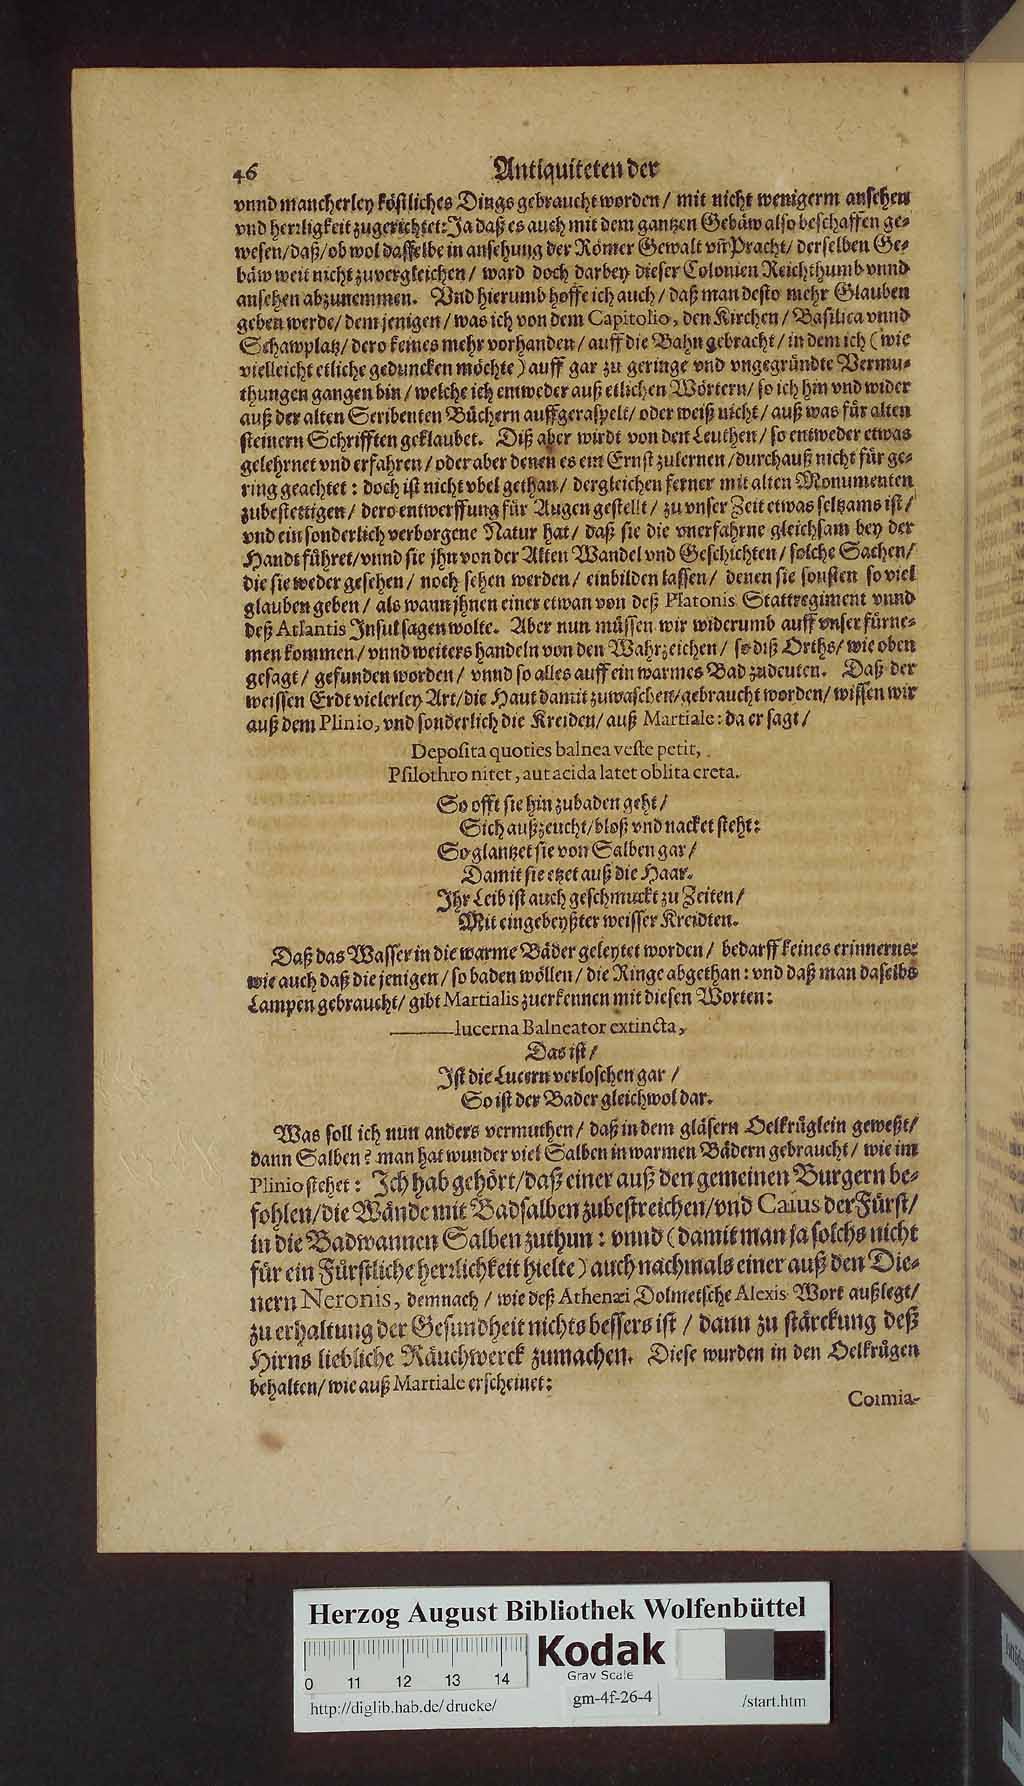 46 Antiquiteten der
vnnd mancherley köstliches Dings gebraucht worden / mit nicht wenigerm ansehen
vnd herrligkeit zugerichtet: Ja daß es auch mit dem gantzen Gebäw also beschaffen ge-
wesen / daß / ob wol dasselbe in ansehung der Römer Gewalt vñ Pracht / derselben Ge-
bäw weit nicht zuvergleichen / ward doch darbey dieser Colonien Reichthumb vnnd
ansehen abzunemmen. Vnd hierumb hoffe ich auch / daß man desto mehr Glauben
geben werde / dem jenigen / was ich von dem Capitolio, den Kirchen / Basilica vnnd
Schawplatz / dero keines mehr vorhanden / auff die Bahn gebracht / in dem ich (wie
vielleicht etliche geduncken möchte) auff gar zu geringe vnd vngegründte Vermu-
thungen gangen bin / welche ich entweder auß etlichen Wörtern / so ich hin vnd wider
auß der alten Scribenten Büchern auffgeraspelt / oder weiß nicht / auß was für alten
steinern Schrifften geklaubet. Diß aber wirdt von den Leuthen / so entweder etwas
gelehrnet vnd erfahren / oder aber denen es ein Ernst zulernen / durchauß nicht für ge-
ring geachtet: doch ist nicht vbel gethan / dergleichen ferner mit alten Monumenten
zubestettigen / dero entwerffung für Augen gestellt / zu vnser Zeit etwas seltzams ist /
vnd ein sonderlich verborgene Natur hat / daß sie die vnerfahrne gleichsam bey der
Handt führet / vnnd sie jhn von der Alten Wandel vnd Geschichten / solche Sachen /
die sie weder gesehen / noch sehen werden / einbilden lassen / denen sie sonsten so viel
glauben geben / als wann jhnen einer etwan von deß Platonis Stattregiment vnnd
deß Atlantis Insul sagen wolte. Aber nun müssen wir widerumb auff vnser fürne-
men kommen / vnnd weiters handeln von den Wahrzeichen / so diß Orths / wie oben
gesagt / gefunden worden / vnnd so alles auff ein warmes Bad zudeuten. Daß der
weissen Erdt vielerley Art / die Haut damit zuwaschen / gebraucht worden / wissen wir
auß dem Plinio, vnd sonderlich die Kreiden / auß Martiale: da er sagt /
Deposita quoties balnea veste petit,
Psilothro nitet, aut acida latet oblita creta.
So offt sie hin zubaden geht /
Sich außzeucht / bloß vnd nacket steht:
So glantzet sie von Salben gar /
Damit sie etzet auß die Haar.
Ihr Leib ist auch geschmuckt zu Zeiten /
Mit eingebeyßter weisser Kreidten.
Daß das Wasser in die warme Bäder geleytet worden / bedarff keines erinnerns:
wie auch daß die jenigen / so baden wöllen / die Ringe abgethan: vnd daß man daselbs
Lampen gebraucht / gibt Martialis zuerkennen mit diesen Worten:
——lucerna Balneator extincta,
Das ist /
Ist die Lucern verloschen gar /
So ist der Bader gleichwol dar.
Was soll ich nun anders vermuthen / daß in dem gläsern Oelkrüglein geweßt /
dann Salben? man hat wunder viel Salben in warmen Bädern gebraucht / wie im
Plinio stehet: Ich hab gehört / daß einer auß den gemeinen Burgern be-
fohlen / die Wände mit Badsalben zubestreichen / vnd Caius der Fürst /
in die Badwannen Salben zuthun: vnnd (damit man ja solchs nicht
für ein Fürstliche herrlichkeit hielte) auch nachmals einer auß den Die-
nern Neronis, demnach / wie deß Athenæi Dolmetsche Alexis Wort außlegt /
zu erhaltung der Gesundheit nichts bessers ist / dann zu stärckung deß
Hirns liebliche Räuchwerck zumachen. Diese wurden in den Oelkrügen
behalten / wie auß Martiale erscheinet:
Cosmia-
Herzog August Bibliothek Wolfenbüttel
Kodak
Gray Scale
0 11 12 13 14
http://diglib.hab.de/drucke/ gm-4f-26-4 /start.htm